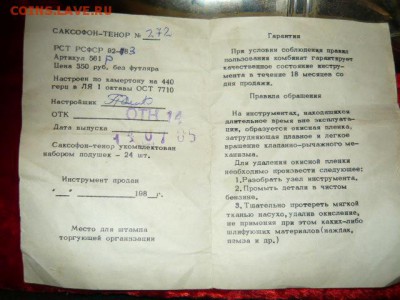 COINSS.LAVE.RU
САКСОФОН-ТЕНОР № 272
РСТ РСФСР 82-83
Артикул 561 Р
Цена 550 руб. без футляра
Настроен по камертону на 440
герц в ЛЯ 1 октавы ОСТ 7710
Настройщик
ОТК ОТК 14
Дата выпуска
Саксофон-тенор укомплектован
набором подушек - 24 шт.
Инструмент продан
"__" ________ 198__ г.
Место для штампа
торгующей организации
Гарантия
При условии соблюдения правил
пользования комбинат гарантирует
качественное состояние инстру-
мента в течение 18 месяцев со
дня продажи.
Правила обращения
На инструментах, находящихся
длительное время вне эксплуата-
ции, образуется окисная пленка,
затрудняющая плавное и легкое
вращение клапанно-рычажного ме-
ханизма.
Для удаления окисной пленки
необходимо произвести следующее:
1.Разобрать узел инструмента.
2.Промыть детали в чистом
бензине.
3.Тщательно протереть мягкой
тканью насухо, удалив окисление,
не применяя при этом каких-либо
шлифующих материалов(наждак,
пемза и др.)